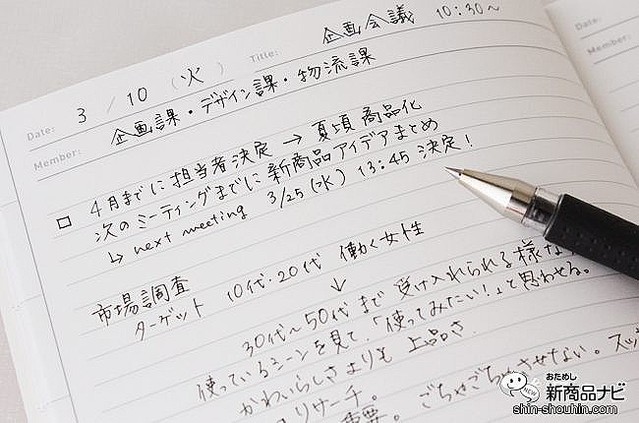 Date: 3 / 10 (火) Title: 企画会議 10:30~
Member: 企画課・デザイン課・物流課
Date:
Member:
□ 4月までに担当者決定 → 夏頃商品化
次のミーティングまでに新商品アイデアまとめ
↳ next meeting 3/25(水) 13:45 決定!
市場調査
ターゲット 10代・20代 働く女性
↓
30代~50代まで 受け入れられる様な
使っているシーンを見て、「使ってみたい!」と思わせる。
かわいらしさよりも 上品さ
リサーチ。
重要。 ごちゃごちゃさせない。スッ
おためし
新商品ナビ
shin-shouhin.com